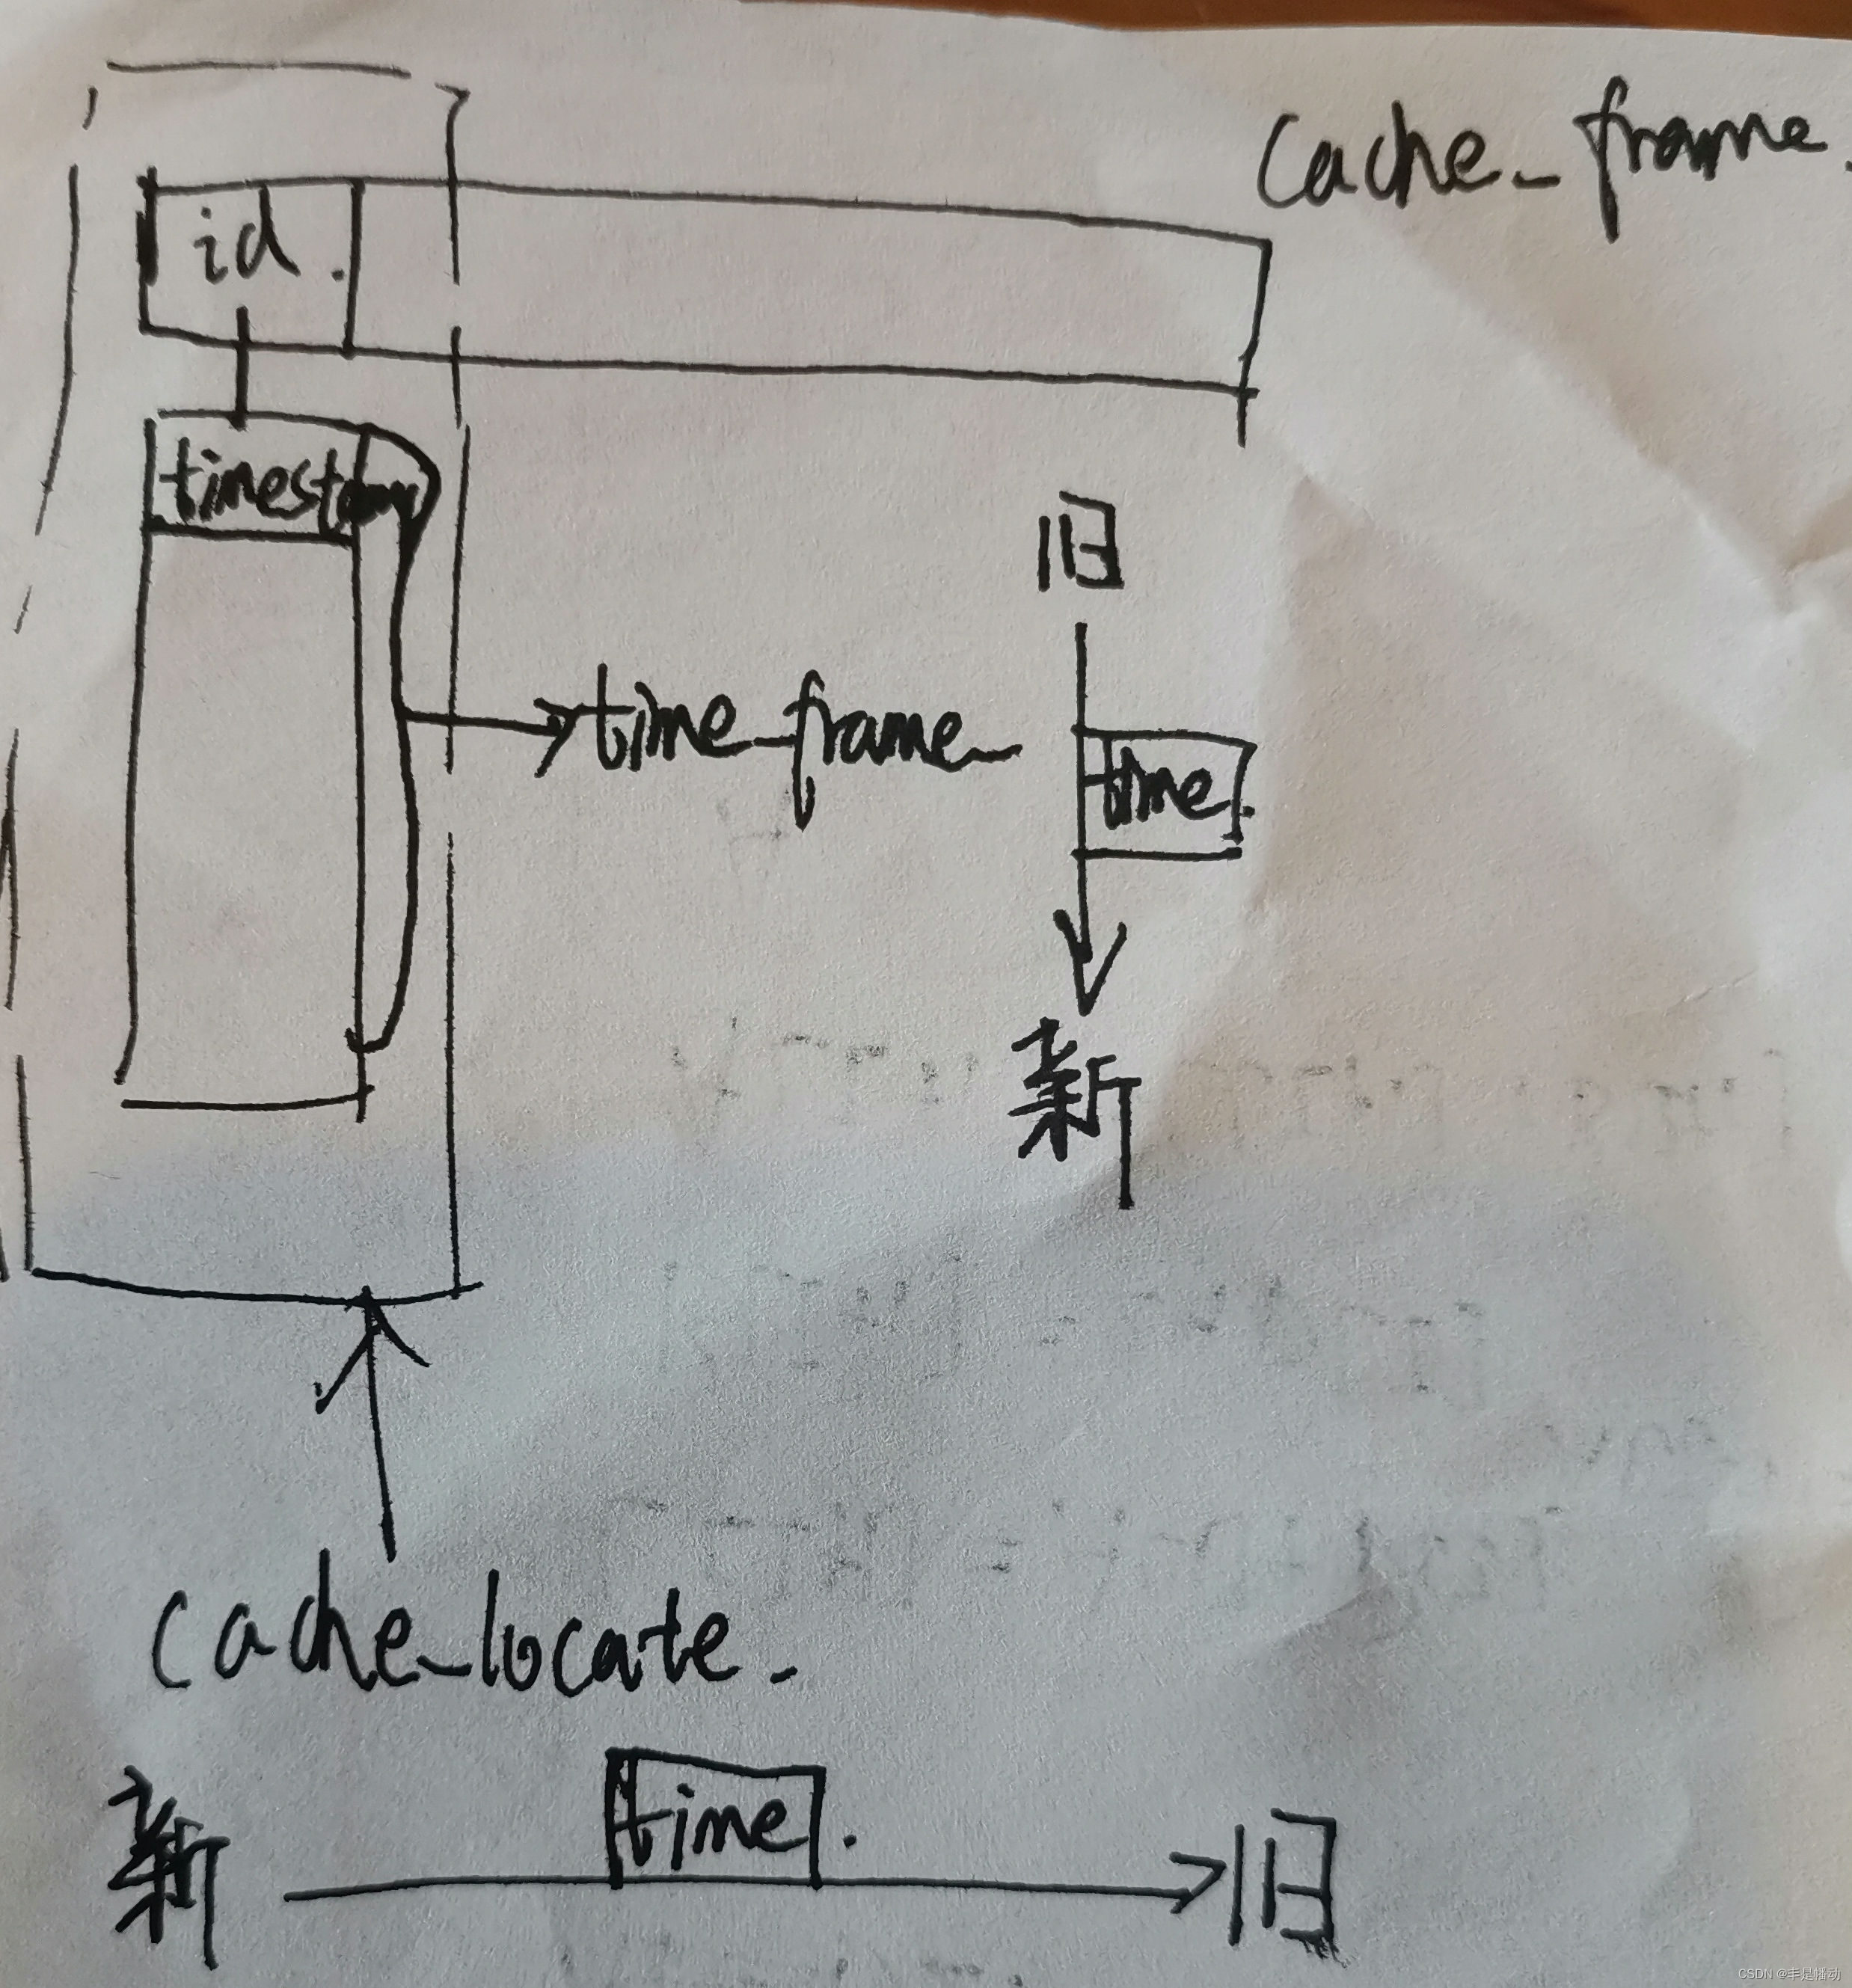 cache_frame.
id.
timestamp
旧
time_frame_
time.
新
cache_locate.
time.
新
旧
CSDN @丰是幡动